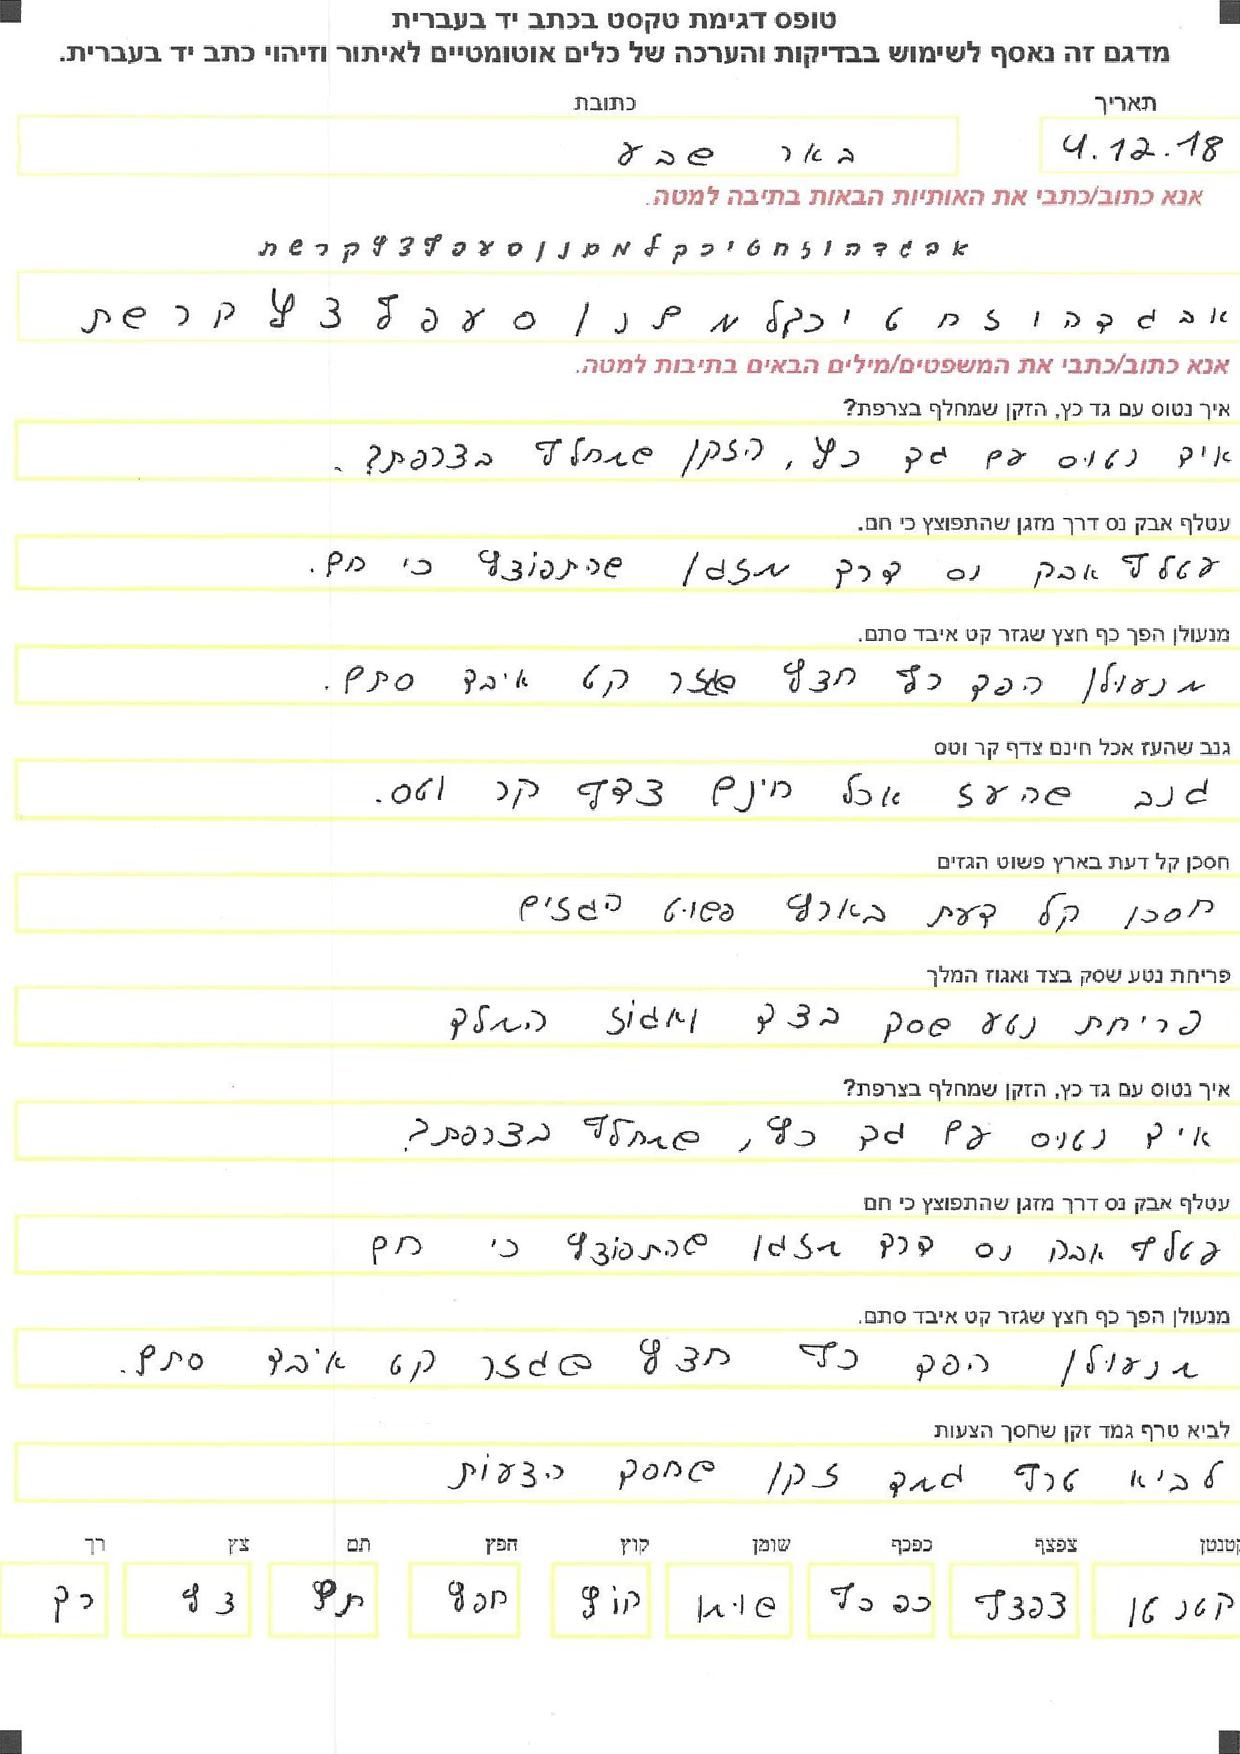 טופס דגימת טקסט בכתב יד בעברית
מדגם זה נאסף לשימוש בבדיקות והערכה של כלים אוטומטיים לאיתור וזיהוי כתב יד בעברית.
תאריך כתובת
4.12.18 באר שבע
אנא כתוב/כתבי את האותיות הבאות בתיבה למטה.
א ב ג ד ה ו ז ח ט י כ ך ל מ ם נ ן ס ע פ ף צ ץ ק ר ש ת
א ב ג ד ה ו ז ח ט י כ ך ל מ ם נ ן ס ע פ ף צ ץ ק ר ש ת
אנא כתוב/כתבי את המשפטים/מילים הבאים בתיבות למטה.
איך נטוס עם גד כץ, הזקן שמחלף בצרפת?
איך נטוס עם גד כץ, הזקן שמחלף בצרפת?.
עטלף אבק נס דרך מזגן שהתפוצץ כי חם.
עטלף אבק נס דרך מזגן שהתפוצץ כי חם.
מנעולן הפך כף חצץ שגזר קט איבד סתם.
מנעולן הפך כף חצץ שגזר קט איבד סתם.
גנב שהעז אכל חינם צדף קר וטס
גנב שהעז אכל חינם צדף קר וטס.
חסכן קל דעת בארץ פשוט הגזים
חסכן קל דעת בארץ פשוט הגזים
פריחת נטע שסק בצד ואגוז המלך
פריחת נטע שסק בצד ואגוז המלך
איך נטוס עם גד כץ, הזקן שמחלף בצרפת?
איך נטוס עם גד כץ, שמחלף בצרפת?
עטלף אבק נס דרך מזגן שהתפוצץ כי חם
עטלף אבק נס דרך מזגן שהתפוצץ כי חם
מנעולן הפך כף חצץ שגזר קט איבד סתם.
מנעולן הפך כף חצץ שגזר קט איבד סתם.
לביא טרף גמד זקן שחסך הצעות
לביא טרף גמד זקן שחסך הצעות
קטנטן צפצף כפכף שומן קוץ חפץ תם צץ רך
קטנטן צפצף כפכף שומן קוץ חפץ צץ רך